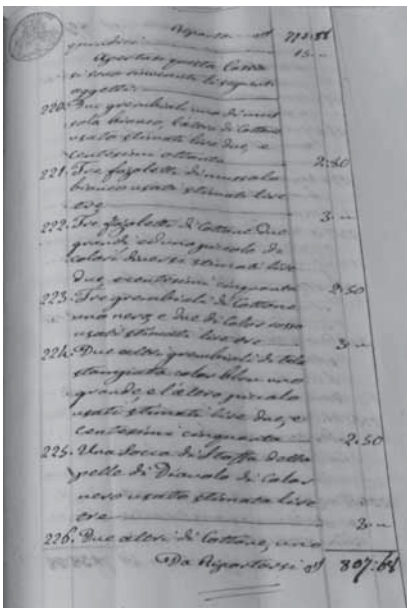 Riporto 790:88
quindici 15 "
Apertasi questa Cassa
si sono rinvenuti li seguenti
oggetti
220. Due grembiali uno di mus
sola bianco, l'altro di Cottone
usato stimati lire due, e
centesimi ottanta 2:80
221. Tre fazoletti di mussola
bianco usati stimati lire
tre 3 "
222. Tre fazoletti di Cottone due
grandi ed uno picolo di
colori diversi stimati lire
due, e centesimi cinquanta 2:50
223. Tre grembiali di Cottone
uno nero, e due di Color rosso
usati stimati lire tre 3 "
224. Due altri grembiali di tela
stampata color bleu uno
grande, e l'altro picolo
usati stimati lire due, e
centesimi cinquanta 2.50
225. Una Socca di Staffa detta
pelle di Diavolo di Color
nero usata stimata lire
tre 3 "
226. Due altri di Cottone, uno
Da Riportarsi 807:68